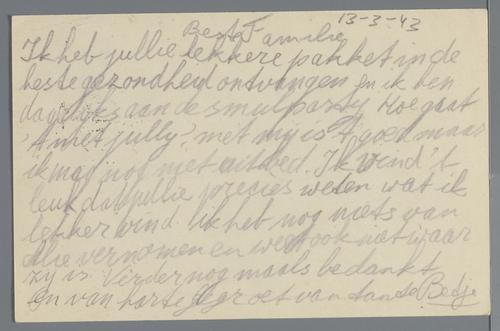 13-3-43
Beste Familie
Ik heb jullie lekkere pahket in de
beste gezondheid ontvangen en ik ben
dagelijks aan de smulparty Hoe gaat
't met jully? met my is 't goed maar
ik mag nog niet uit bed. Ik vind 't
leuk dat jullie precies weten wat ik
lekker vind. Ik heb nog niets van
vernomen en weet ook niet waar
zy is. Verder nog maals bedankt
en van harte gegroet van tante Betje